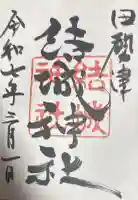 田型津
結城神社
令和七年三月一日
結城
神社